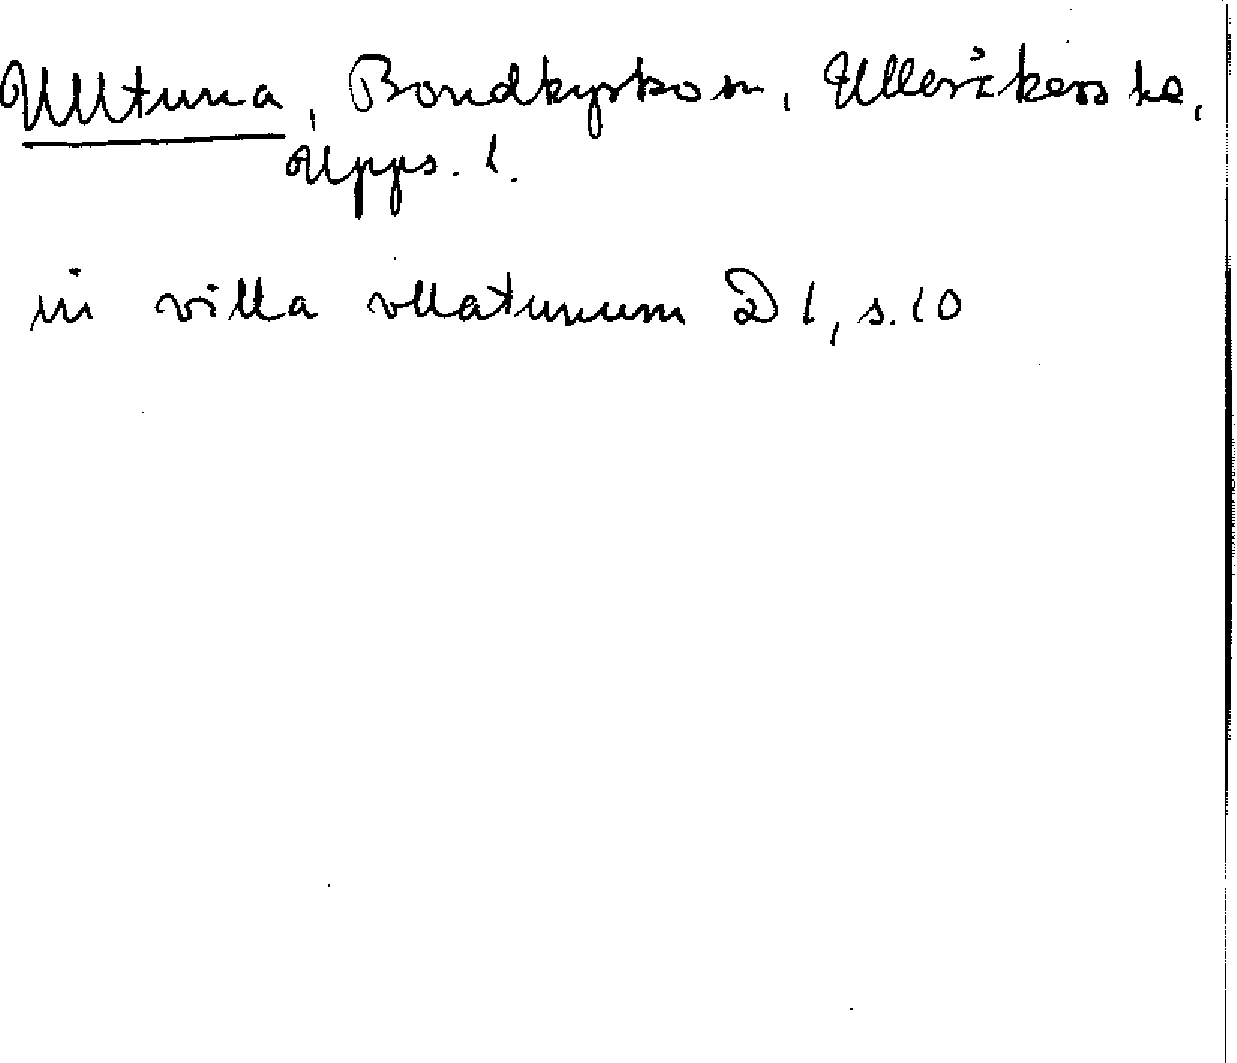 Ulltuna, Bondkyrko sn, Ulleråkers hd,
Upps. l.
in villa vllatunum D 1, s. 10